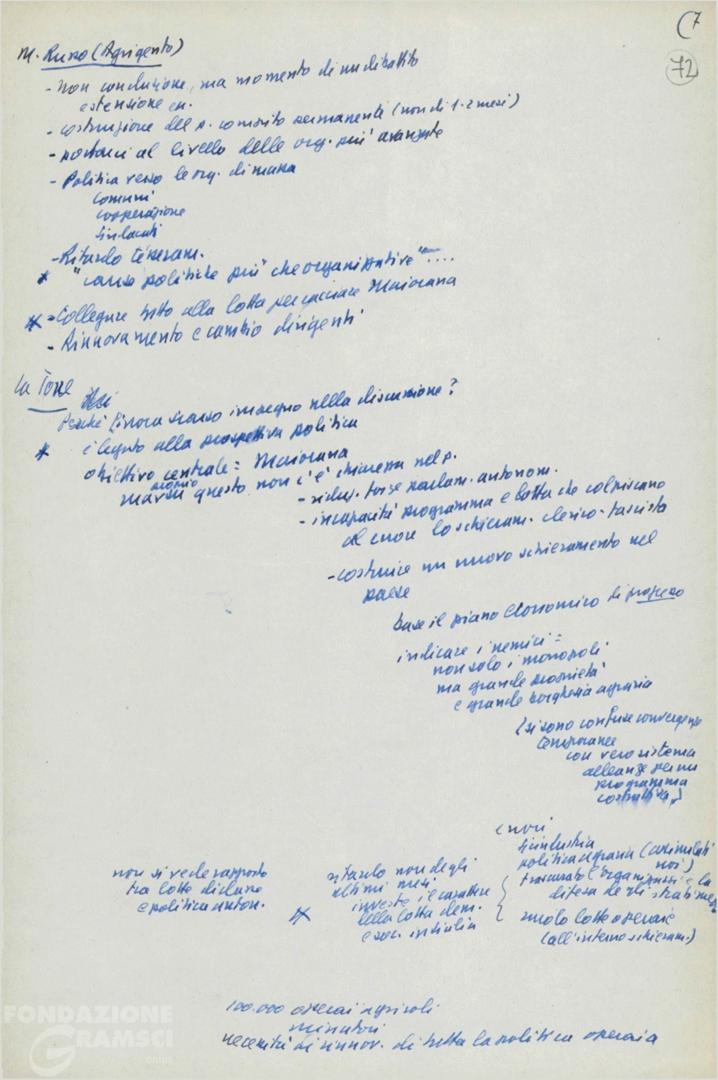 (7
72
M. Russo (Agrigento)
- Non conclusione, ma momento di un dibattito
estensione
- costruzione del p. comunista permanente (non di 1-2 mesi)
- portarci al livello delle org. più avanzate
- Politica verso le org. di massa
comuni
cooperazione
sindacati
- Ritardo tesseram.
* "cause politiche più che organizzative" ....
* - Collegare tutto alla lotta per cacciare Maiorana
- Rinnovamento e cambio dirigenti
La Torre
Perché finora scarso impegno nella discussione?
* è legato alla prospettiva politica
obiettivo centrale = Maiorana
proprio
questo non c'è chiarezza nel p.
- parlam. autonom.
- incapacità programma e lotta che colpiscano
al cuore lo schieram. clerico-fascista
- costruire un nuovo schieramento nel
paese
base il piano economico di progresso
indicare i nemici =
non solo i monopoli
ma grande proprietà
e grande borghesia agraria
(si sono confuse convergenze
temporanee
con vero sistema
alleanze per un
programma
costruttivo)
errori
industria
politica agraria (
noi)
trascurato l'organizzazione e la
difesa degli strati
ruolo lotte operaie
(all'interno schieram.)
non si vede rapporto
tra lotte di classe
e politica auton.
ritardo non degli
ultimi mesi.
investe il carattere
* della lotta dem.
e soc. in Sicilia
100.000 operai agricoli
minatori
necessità di rinnov. di tutta la politica operaia
FONDAZIONE
GRAMSCI